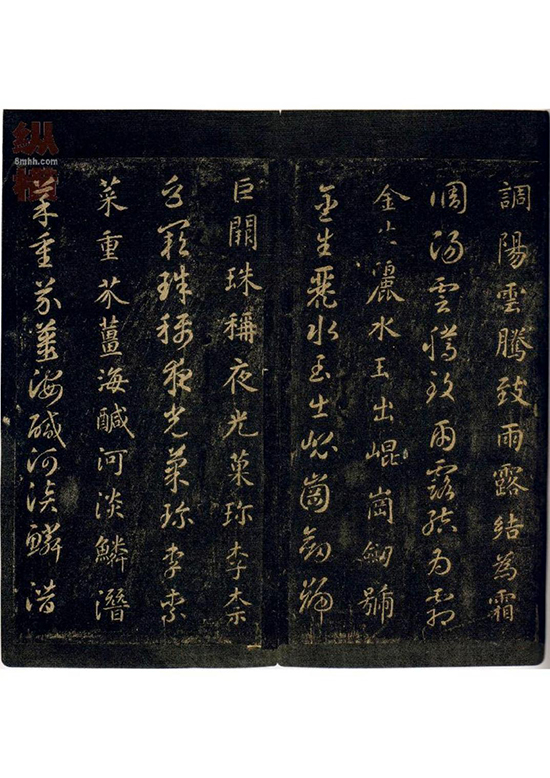 調陽雲騰致雨露結為霜
調陽雲騰致雨露結為霜
金生麗水玉出崐崗劒號
金生麗水玉出崐崗劒號
巨闕珠稱夜光菓珎李柰
巨闕珠稱夜光菓珎李柰
菜重芥薑海鹹河淡鱗潛
菜重芥薑海鹹河淡鱗潛
纵横
8mhh.com